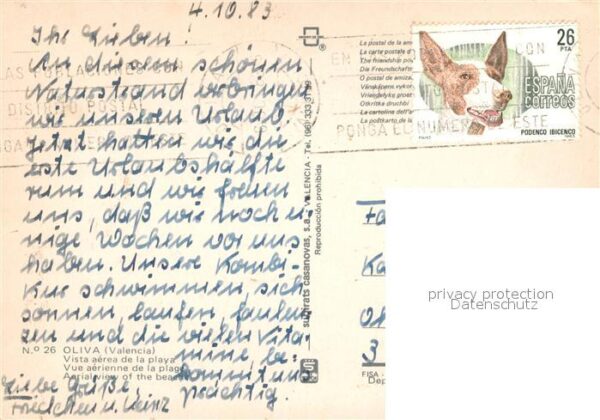 4.10.83
Ihr Lieben!
An diesem schönen
Naturstrand verbringen
wir unseren Urlaub.
Jetzt hatten wir die
erste Urlaubshälfte
rum und wir freuen
uns, daß wir noch ei-
nige Wochen vor uns
haben. Unsere Kombi-
Kur schwimmen, sich
sonnen, laufen, faulen-
zen und die vielen Vita-
mine, be-
kommt uns
prächtig.
Liebe Grüße
Friedchen u. Heinz
N.º 26 OLIVA (Valencia)
Vista aérea de la playa
Vue aérienne de la plage
Aerial view of the beach
subirats casanovas, s.a. - VALENCIA - Tel. (96)
Reproducción prohibida
La postal de la
La carte postale d'
The friendship po
Die Freundschafts
O postal de amiza
Vänskapens vyko
Vriendelijke groet
Otkritka druzhb
La cartolina dell'a
La postkarto de la
26
PTA
ESPAÑA
correos
PODENCO IBICENCO
DISTRITO POSTAL
PONGA EL NUMERO DE ESTE
FISA -
Dep
privacy protection
Datenschutz